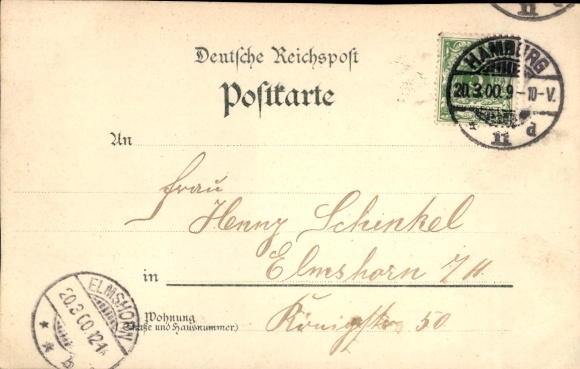 Deutsche Reichspost
Postkarte
HAMBURG
20.3.00.9-10-V.
* 11 d
An
Frau
Henny Schinkel
in Elmshorn
Wohnung
(Straße und Hausnummer)
Königstr. 50
ELMSHORN
20.3.00.12-1N
* * b